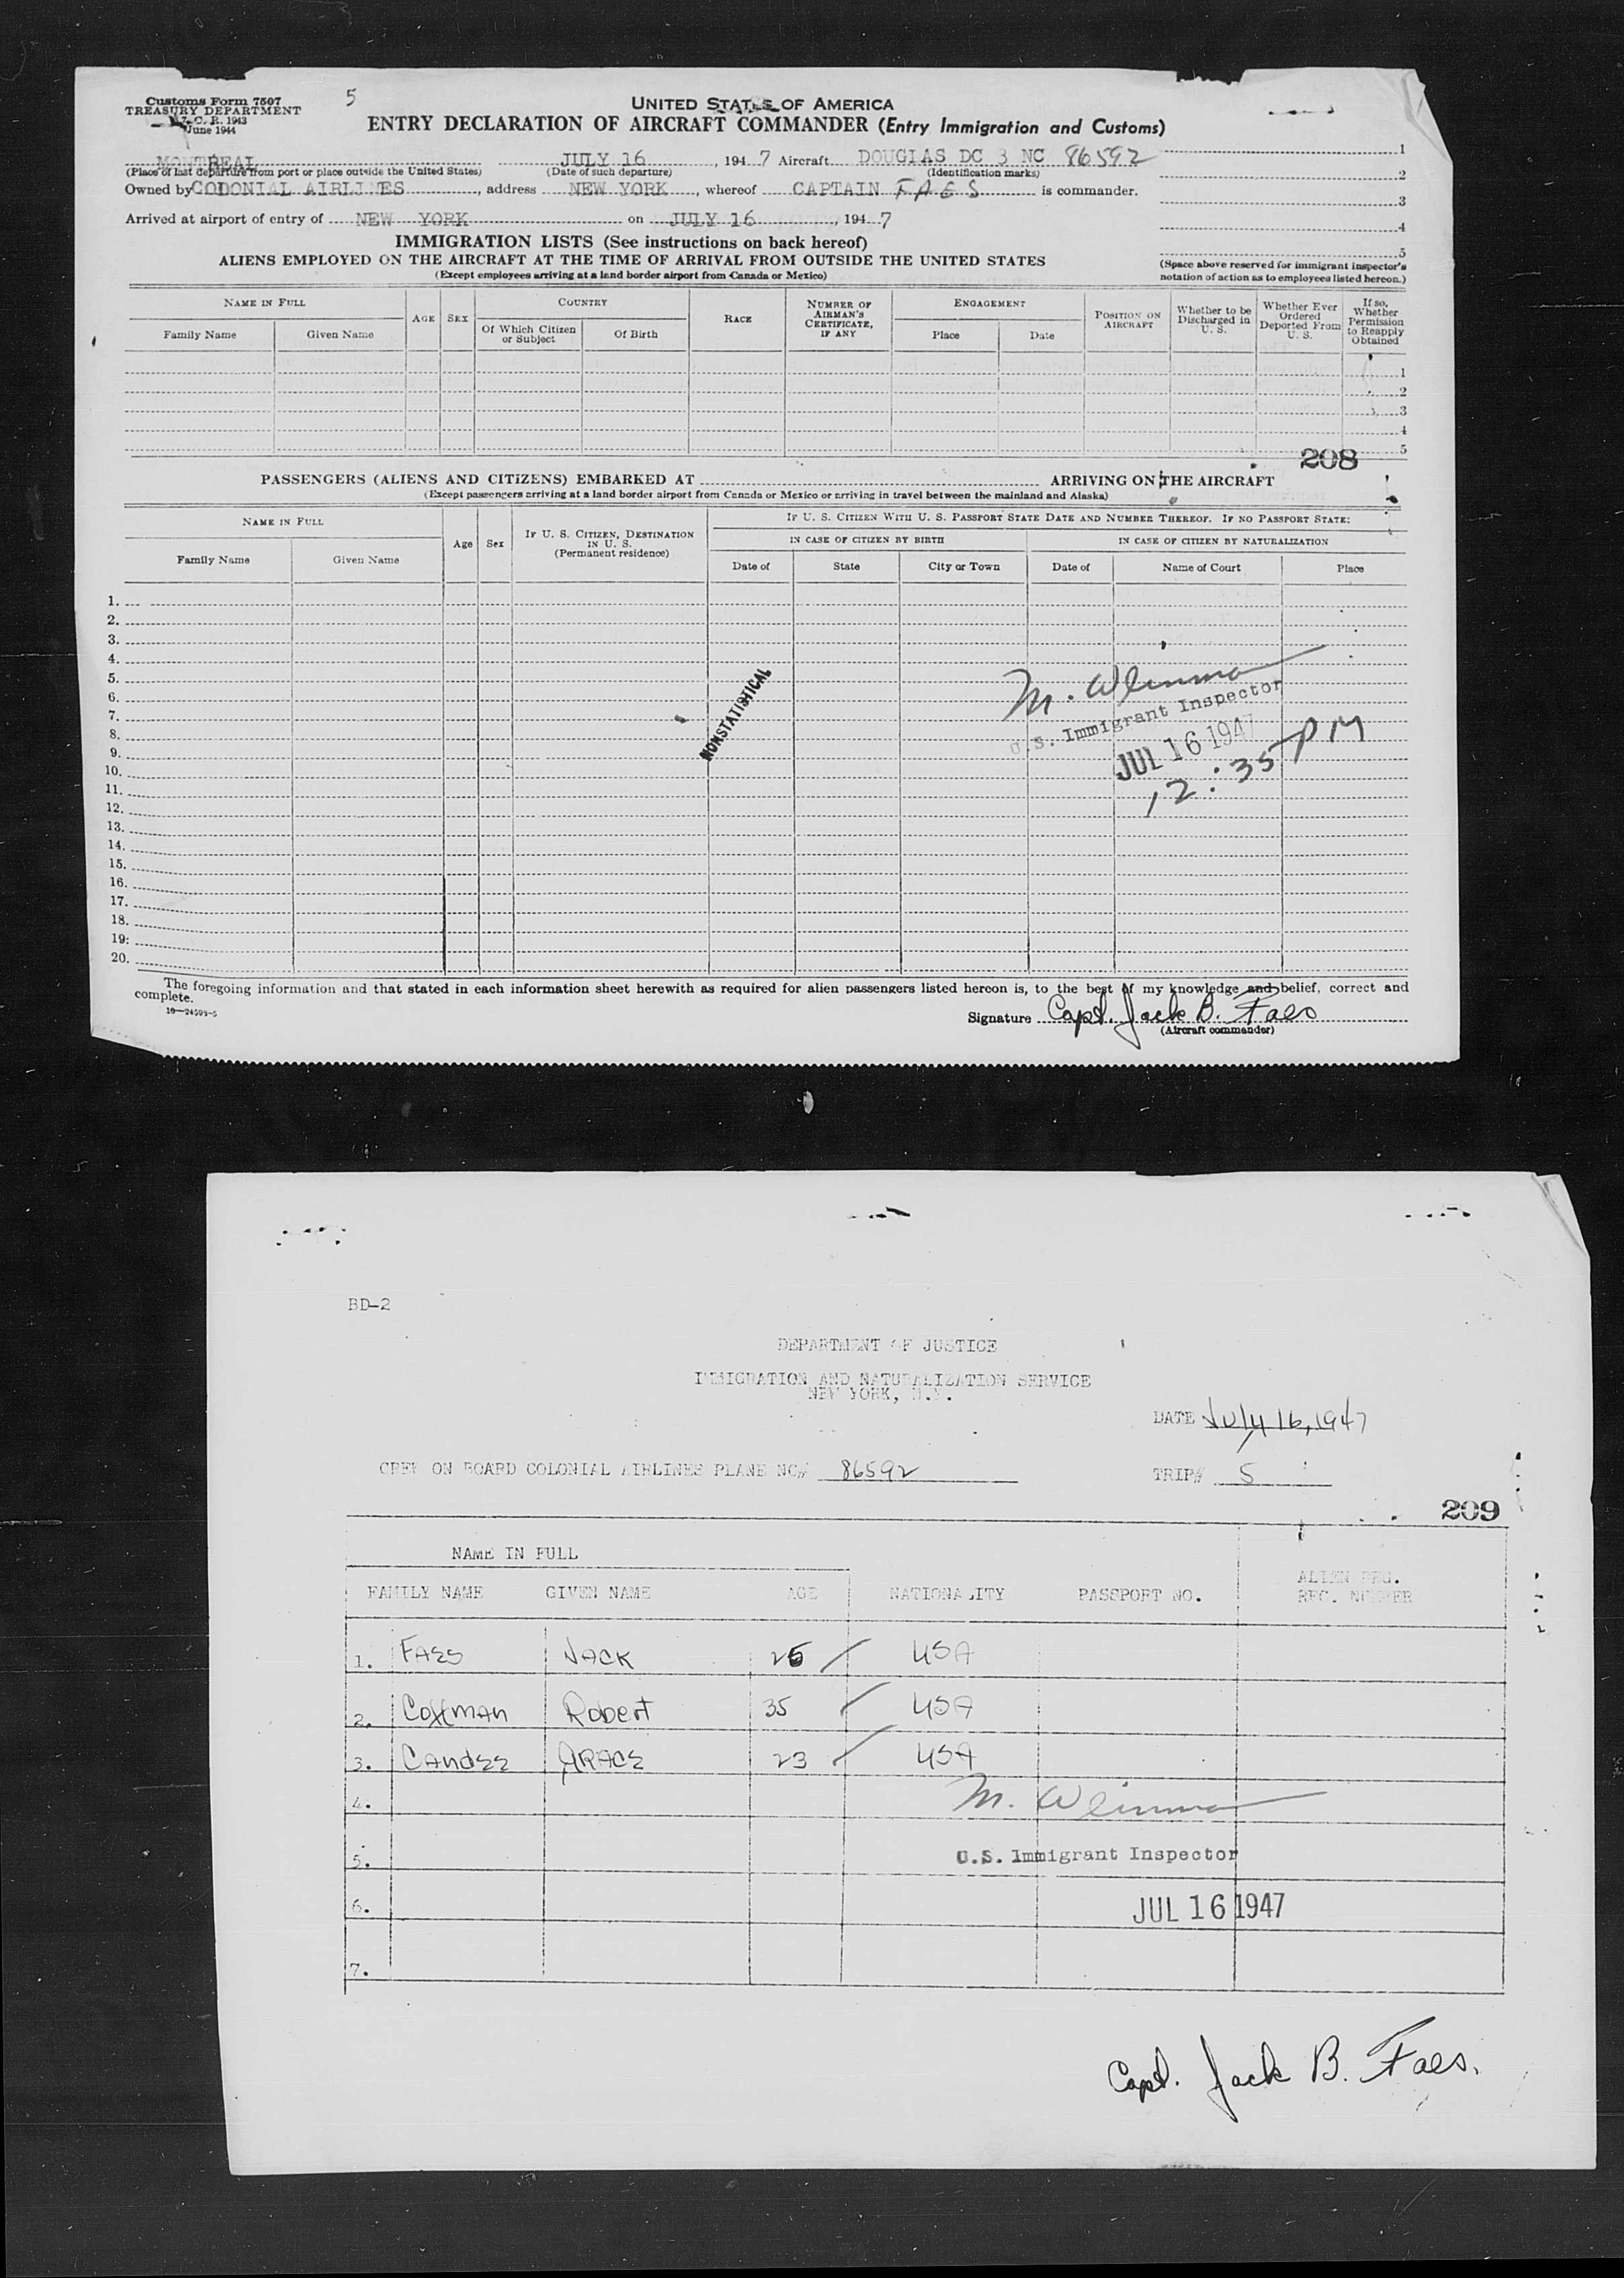 Customs Form 7507
TREASURY DEPARTMENT
C. R. 1943
June 1944
5
UNITED STATES OF AMERICA
ENTRY DECLARATION OF AIRCRAFT COMMANDER (Entry Immigration and Customs)
MONTREAL JULY 16, 1947 Aircraft DOUGLAS DC 3 NC 86592
(Place of last departure from port or place outside the United States) (Date of such departure) (Identification marks)
Owned by COLONIAL AIRLINES, address NEW YORK, whereof CAPTAIN FAES is commander.
Arrived at airport of entry of NEW YORK on JULY 16, 1947
1
2
3
4
5
(Space above reserved for immigrant inspector's
notation of action as to employees listed hereon.)
IMMIGRATION LISTS (See instructions on back hereof)
ALIENS EMPLOYED ON THE AIRCRAFT AT THE TIME OF ARRIVAL FROM OUTSIDE THE UNITED STATES
(Except employees arriving at a land border airport from Canada or Mexico)
NAME IN FULL
Family Name Given Name
AGE SEX
COUNTRY
Of Which Citizen or Subject Of Birth
RACE
NUMBER OF AIRMAN'S CERTIFICATE, IF ANY
ENGAGEMENT
Place Date
POSITION ON AIRCRAFT
Whether to be Discharged in U. S.
Whether Ever Ordered Deported From U. S.
If so, Whether Permission to Reapply Obtained
1
2
3
4
5
208
PASSENGERS (ALIENS AND CITIZENS) EMBARKED AT ARRIVING ON THE AIRCRAFT
(Except passengers arriving at a land border airport from Canada or Mexico or arriving in travel between the mainland and Alaska)
NAME IN FULL
Family Name Given Name
Age Sex
IF U. S. CITIZEN, DESTINATION IN U. S. (Permanent residence)
IF U. S. CITIZEN WITH U. S. PASSPORT STATE DATE AND NUMBER THEREOF. IF NO PASSPORT STATE:
IN CASE OF CITIZEN BY BIRTH IN CASE OF CITIZEN BY NATURALIZATION
Date of State City or Town Date of Name of Court Place
1.
2.
3.
4.
5.
6.
7.
8.
9.
10.
11.
12.
13.
14.
15.
16.
17.
18.
19.
20.
NONSTATISTICAL
M.
U.S. Immigrant Inspector
JUL 16 1947
12:35 PM
The foregoing information and that stated in each information sheet herewith as required for alien passengers listed hereon is, to the best of my knowledge and belief, correct and
complete.
Signature Capt. Jack B. Faes
(Aircraft commander)
BD-2
DEPARTMENT OF JUSTICE
IMMIGRATION AND NATURALIZATION SERVICE
NEW YORK, N.Y.
DATE July 16, 1947
CREW ON BOARD COLONIAL AIRLINES PLANE NC# 86592 TRIP# 5
209
NAME IN FULL
FAMILY NAME GIVEN NAME AGE NATIONALITY PASSPORT NO. ALIEN REG. REC. NUMBER
1. FAES JACK 25 USA
2. Coffman Robert 35 USA
3. CANdEE GRACE 23 USA
4.
M.
5.
U.S. Immigrant Inspector
6.
JUL 16 1947
7.
Capt. Jack B. Faes.